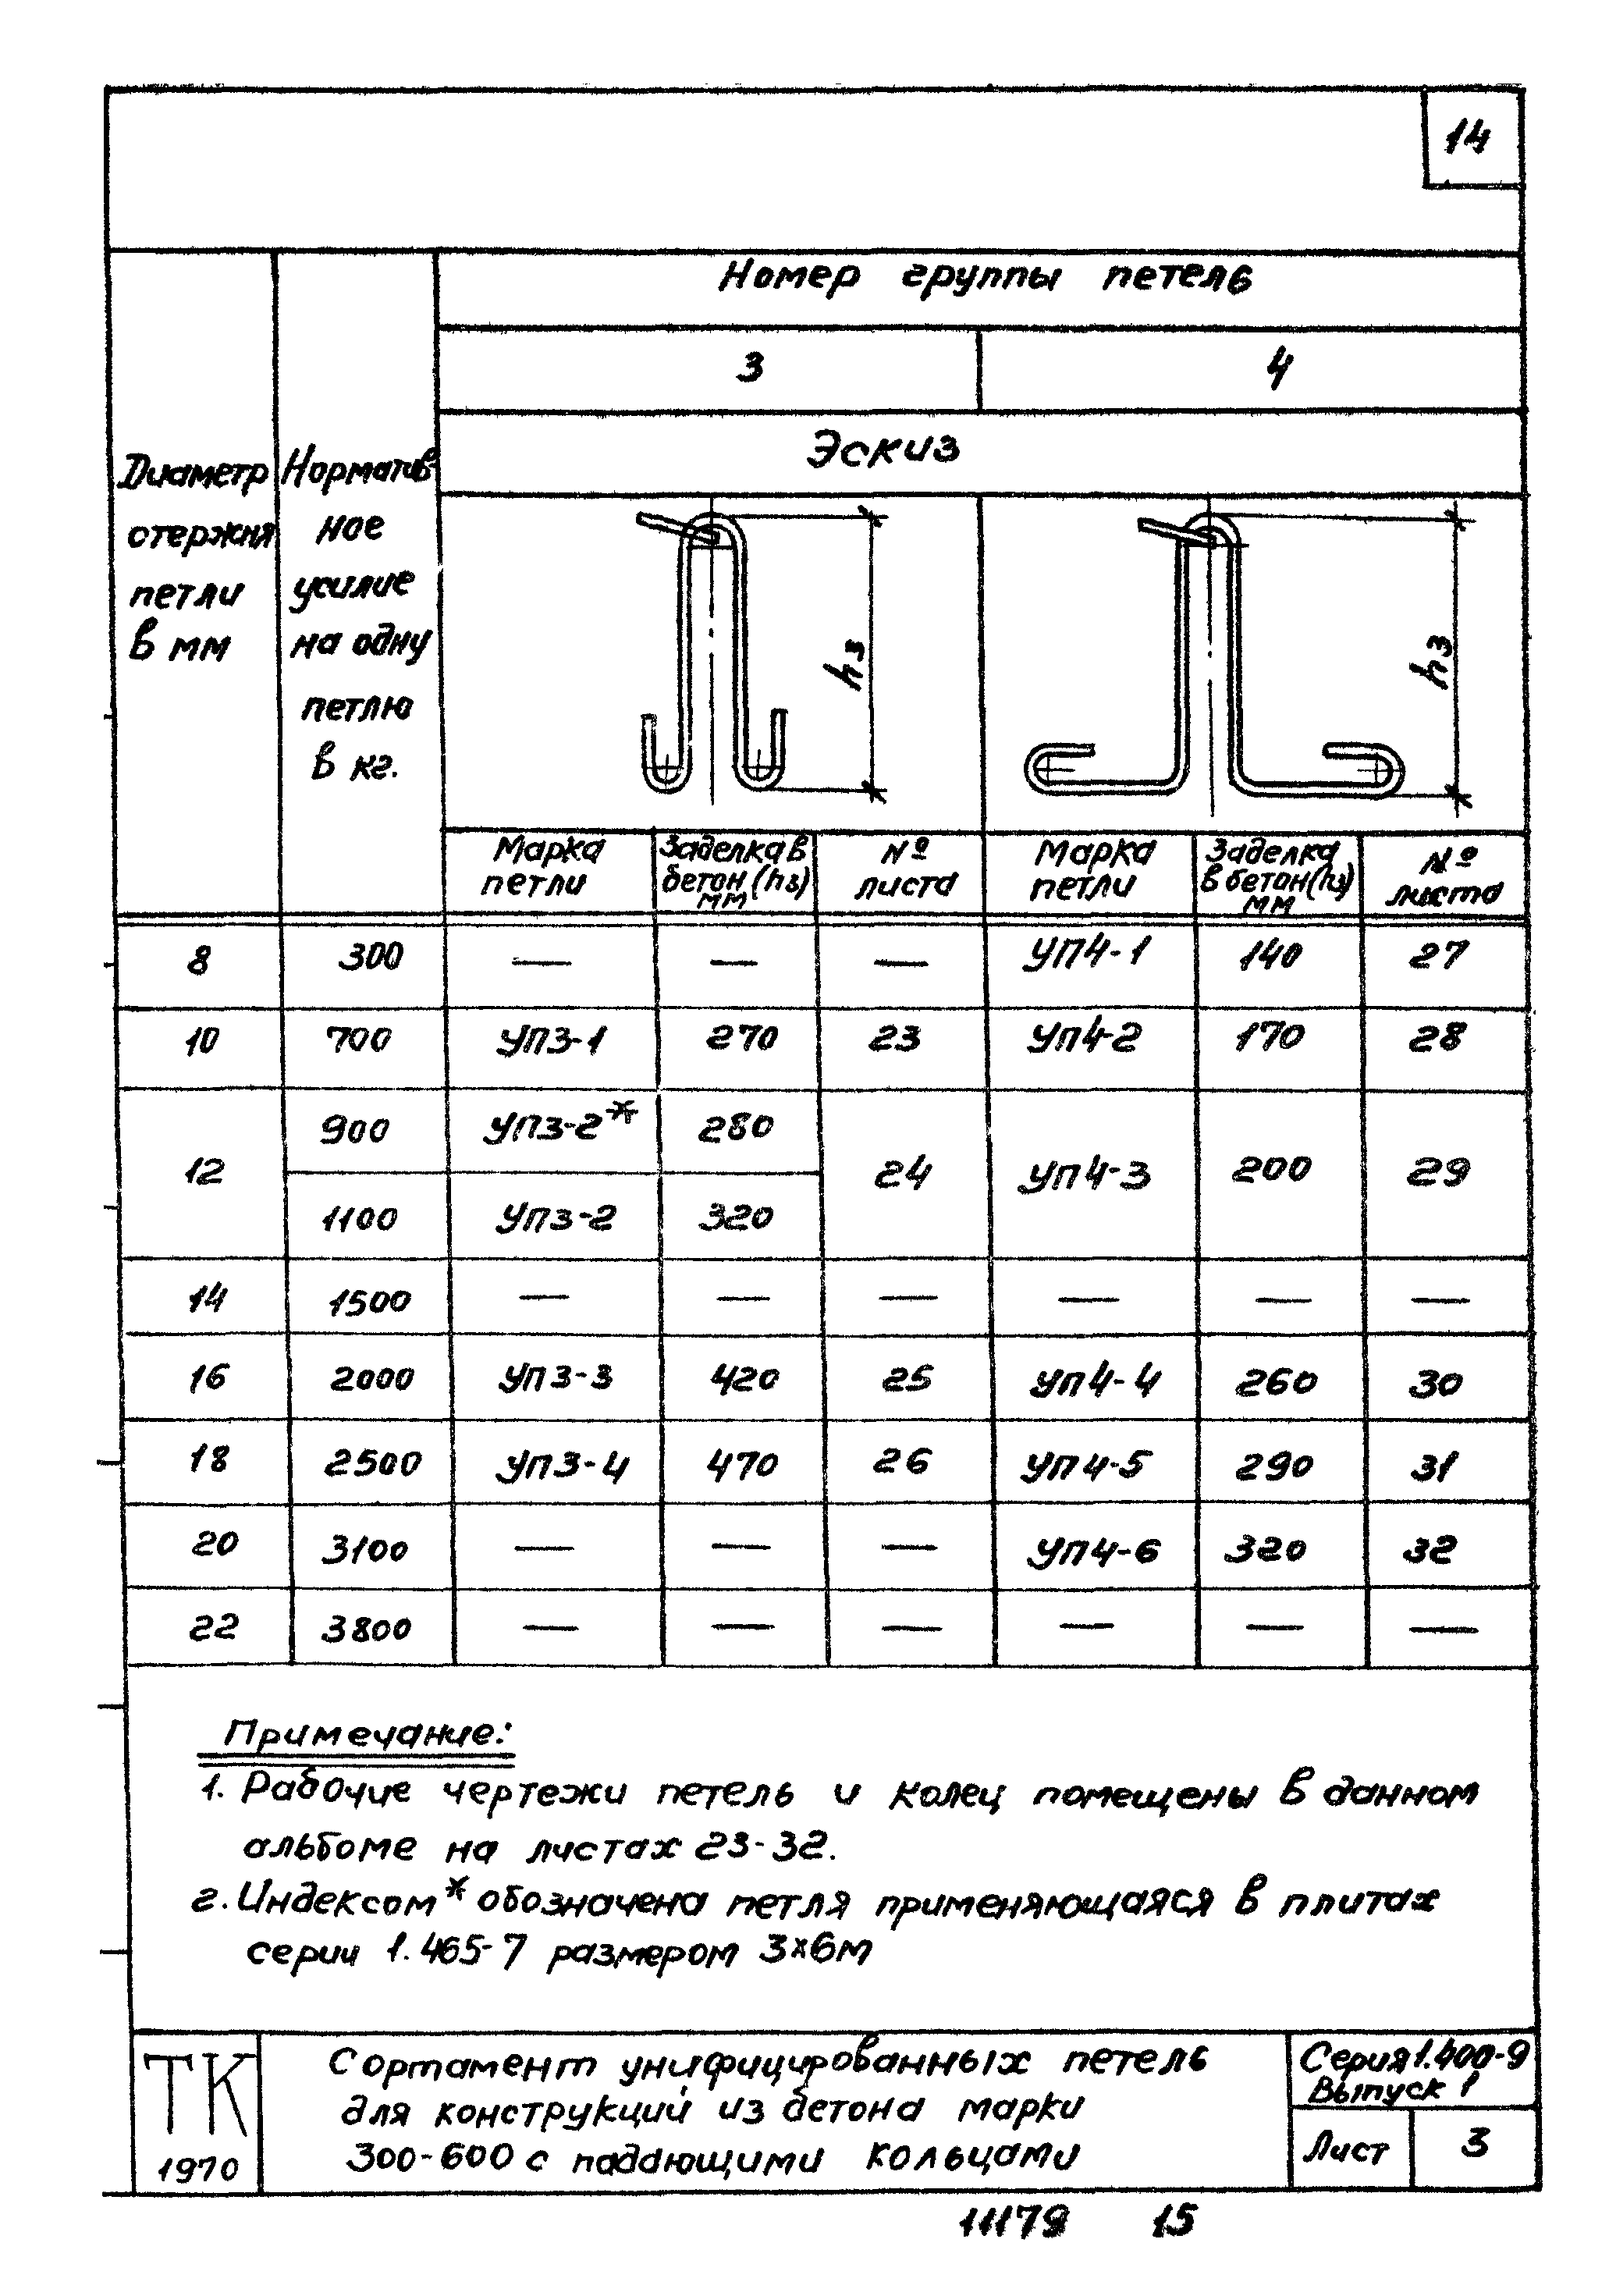 14
Номер группы петель
3 4
Эскиз
Диаметр
стержня
петли
в мм
Норматив-
ное
усилие
на одну
петлю
в кг.
hз hз
Марка
петли
Заделка в
бетон (hз)
мм
№
листа
Марка
петли
Заделка
в бетон (hз)
мм
№
листа
8 300 — — — УП4-1 140 27
10 700 УП3-1 270 23 УП4-2 170 28
12 900 УП3-2* 280 24 УП4-3 200 29
1100 УП3-2 320
14 1500 — — — — — —
16 2000 УП3-3 420 25 УП4-4 260 30
18 2500 УП3-4 470 26 УП4-5 290 31
20 3100 — — — УП4-6 320 32
22 3800 — — — — — —
Примечание:
1. Рабочие чертежи петель и колец помещены в данном
альбоме на листах 23-32.
2. Индексом * обозначена петля применяющаяся в плитах
серии 1.465-7 размером 3х6м
ТК
1970
Сортамент унифицированных петель
для конструкций из бетона марки
300-600 с падающими кольцами
Серия 1.400-9
Выпуск 1
Лист 3
11179 15